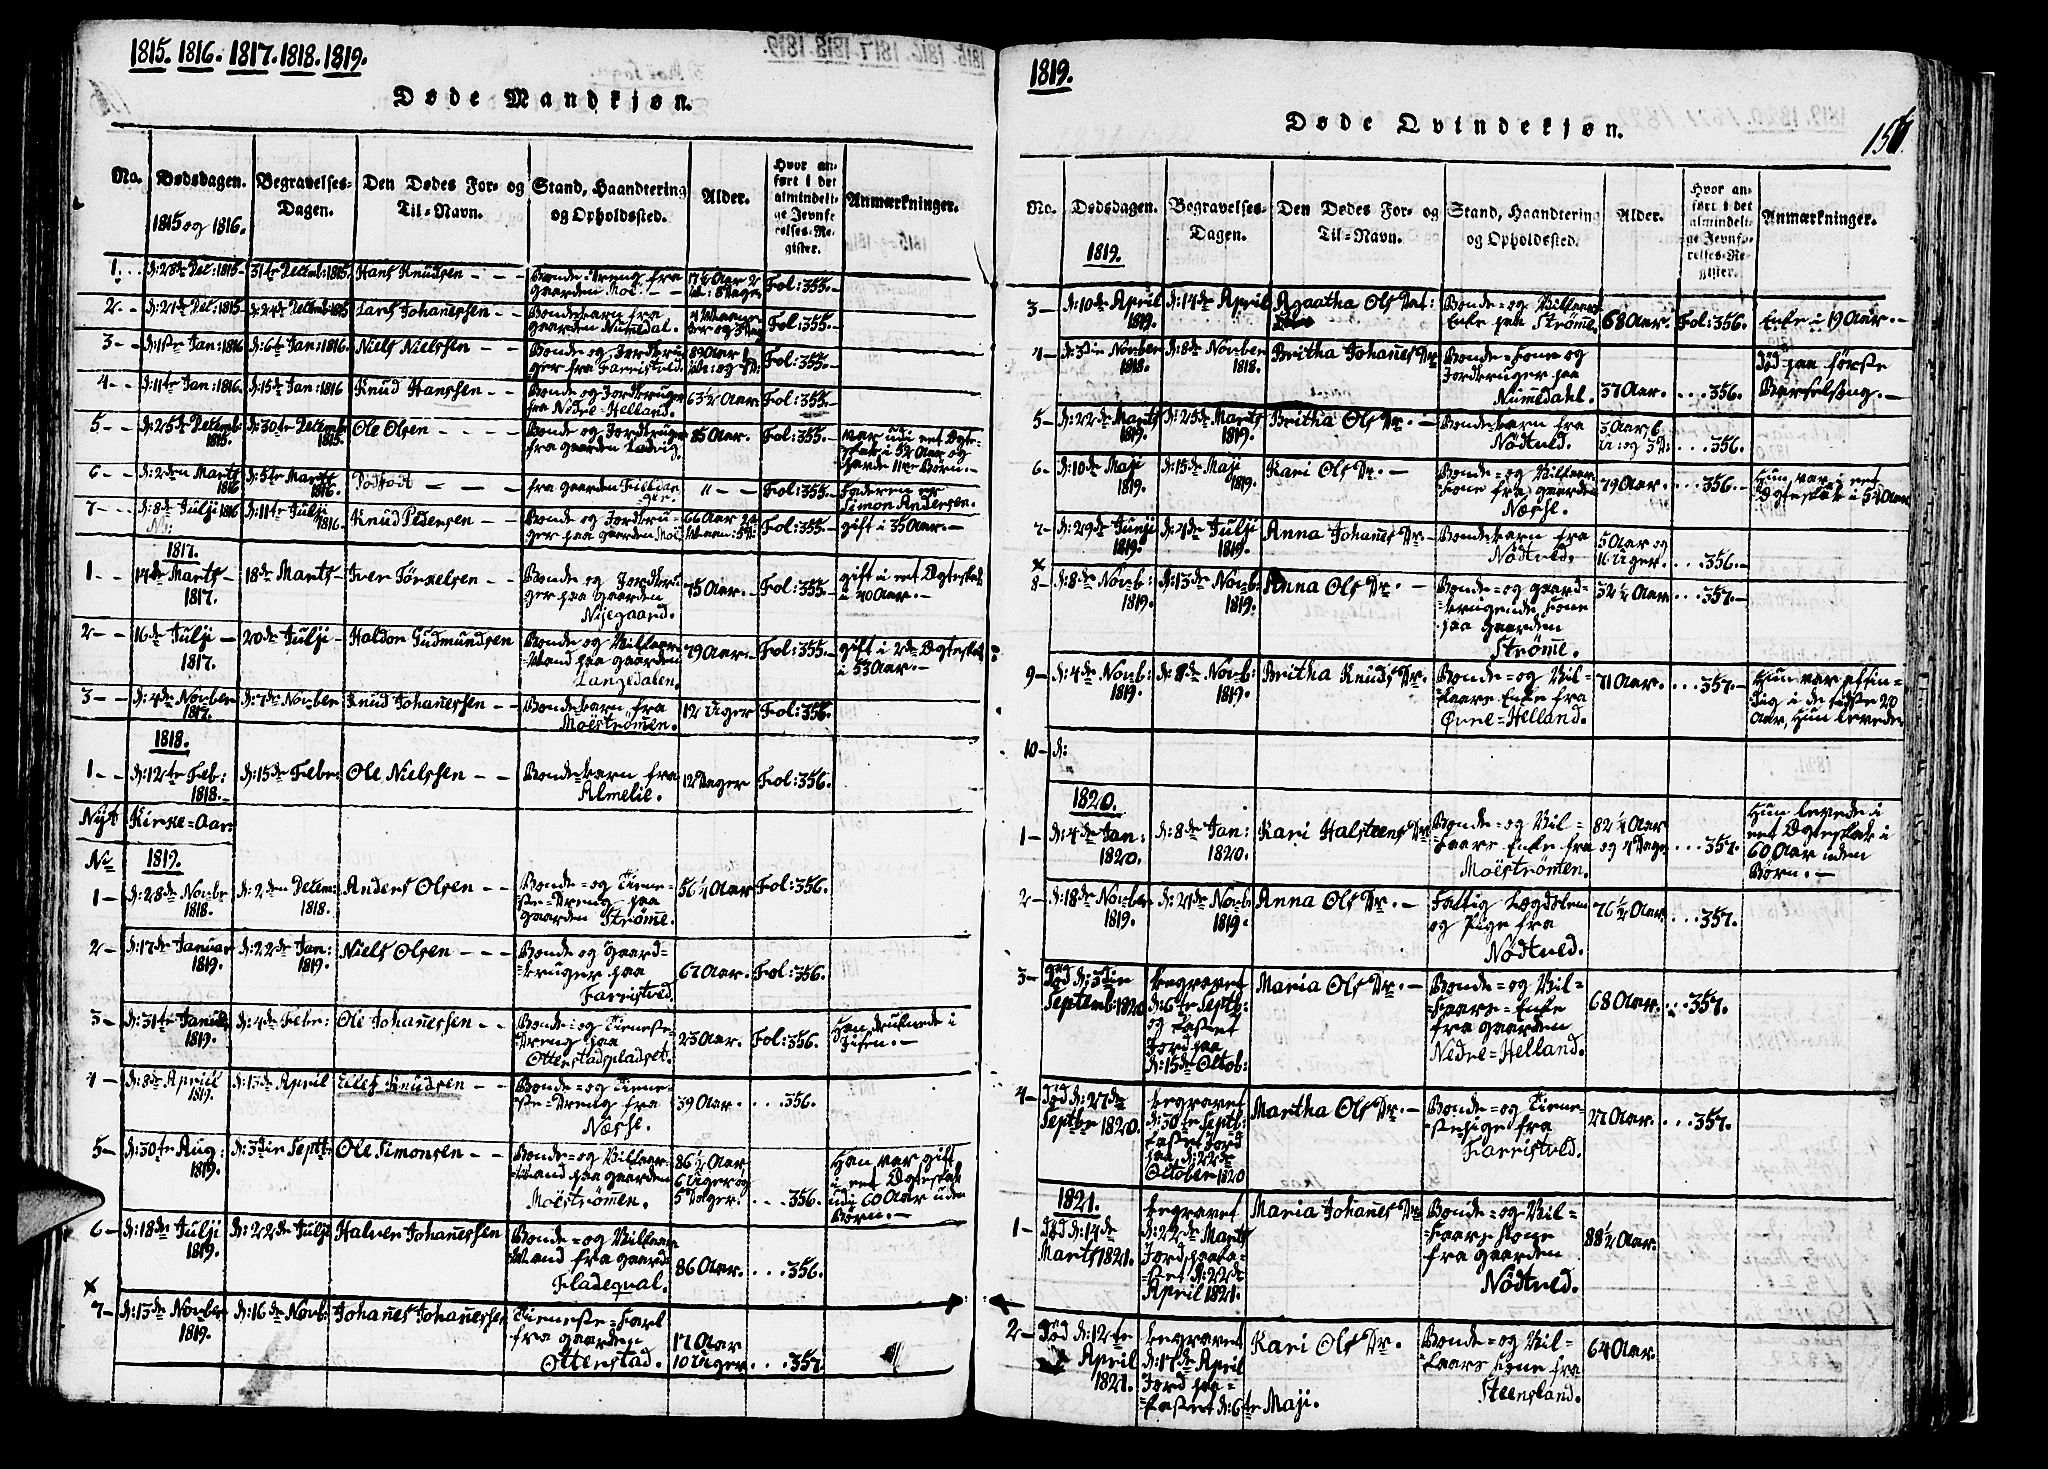 1815. 1816. 1817. 1818. 1819.
Døde Mandkjøn.
No.
Dødsdagen.
Begravelses-
Dagen.
Den Dødes For- og
Til-Navn.
Stand, Haandtering
og Opholdssted.
Alder.
Hvor an-
ført i det
almindeli-
ge Jevnfø-
relses-Re-
gister.
Anmærkninger.
1815 og 1816.
1. d: 28de Dec: 1815 31te Decemb: 1815. Hans Knudsen Bonde-Dreng fra
gaarden Moë. 17 1/2 Aar 2 Fol: 355.
2 d: 21de Dec: 1815 Lars Johanessen Bondebarn fra
gaarden Numedal. Fol: 355.
3 d: 1ste Jan: 1816 d: 6te Jan: 1816. Niels Nielssen Bonde og Jordbru-
ger fra Farristvedt. 89 Aar Fol: 355.
4 d: 11te Jan: 1816. d: 15de Jan: 1816 Knud Hanssen Bonde og Jordbruger
fra Nedre-Helland. 63 1/2 Aar Fol: 355.
5 d: 25de Decemb:
1815. d: 30te Decemb
1815. Ole Olsen Bonde og Jordbruger
fra gaarden 85 Aar. Fol: 355. var udi eet Ægte-
skab i 52 Aar og
11 Børn.
6 d: 2den Marts
1816 d: 5te Marts
1816. Dødfødt fra gaarden " Fol: 355. Faderen er
Simon Andersen.
7 d: 8de Julji 1816 d: 11te Julji
1816. Knud Pedersen Bonde og Jordbru-
ger paa gaarden Moë. 66 Aar Fol: 355 gift i 35 Aar.
1817.
1 14de Marts
1817. 18de Marts Iver Törkelsen Bonde og Jordbru-
ger paa gaarden
Nyegaard. 75 Aar. Fol: 355. gift i eet Ægteskab
i 40 Aar.
2 16de Julji
1817. 20de Julji Haldor Gudmundsen Bonde og Villaars
Mand paa gaarden
Langedalen. 79 Aar. Fol: 355. gift i 2de Ægteskab
i 53 Aar.
3 d: 4de Novber
1817. d: 7de Novber Knud Johanessen Bondebarn fra
Moëströmen. 12 Uger Fol: 356.
1818.
1 d: 12te Feb:
1818. d: 15de Febr: Ole Nielssen Bonde-barn fra
Almelie. 12 Dager Fol: 356.
Nyt Kirke-Aar
No 1819.
1 d: 28de Novbr
1818. d: 2den Decem:
1818. Anders Olsen Bonde- og Tiene-
ste-Dreng paa
gaarden Strøme. 56 1/4 Aar Fol: 356.
2 d: 17de Januar
1819. d: 22de Jan:
1819. Niels Olsen Bonde og Gaard-
bruger paa
Farristvedt. 67 Aar. Fol: 356.
3 d: 31te Januar
1819. d: 4de Febr: Ole Johanessen Bonde- og Tieneste-
Dreng paa
Ottenstadpladset. 23 Aar. Fol: 356. Han druknede i
4 d: 8de Apriil
1819. d: 13de April Ellef Knudsen Bonde- og Tiene-
ste-Dreng fra
Næsse. 39 Aar. 356.
5 d: 30te Aug:
1819. d: 3die Septb: Ole Simonsen Bonde- og Villaars-
Mand paa gaarden
Moëströmen. 86 1/2 Aar,
6 Uger og
5 Dager. 356. Han var gift
i eet Ægteskab
udi 60 Aar uden
Børn.
6 d: 18de Julji
1819. d: 22de Julji Halver Johanessen Bonde- og Villaars
Mand fra gaard
Fladequal. 86 Aar. 356.
7 d: 13de Novber
1819. d: 16de Novb: Johanes Johanessen Tieneste-Karl
fra gaarden
Ottenstad. 17 Aar
10 Uger. 357
1819.
Døde Qvindekjøn.
No.
Dødsdagen.
Begravelses-
Dagen.
Den Dødes For- og
Til-Navn.
Stand, Haandtering
og Opholdssted.
Alder.
Hvor an-
ført i det
almindeli-
ge Jevnfø-
relses-Re-
gister.
Anmærkninger.
1819.
3 d: 10de April
1819. d: 14de April Agaatha Ols Dat: Bonde- og Villaars
Enke paa Strøme. 68 Aar. Fol: 356. Enke i 19 Aar.
4 d: 3die Novber
1818. d: 8de Novber
1818. Britha Johanes Dr Bonde-Kone og
Jordbruger paa
Numedahl. 37 Aar. 356. Død paa første
Barselseng.
5 d: 22de Marts
1819. d: 25de Marts
1819. Britha Ols Dr. Bondebarn fra
Nødtved. 3 Aar 6 356.
6 d: 10de Maji
1819. d: 15de Maji
1819. Kari Ols Dr. Bonde- og Villaars
Kone fra gaarden
Næsse. 79 Aar. 356. Hun var i eet
Ægteskab i 54 Aar
7 d: 29de Junji
1819. d: 4de Julji
1819. Anna Johanes Dr Bondebarn fra
Nødtved. 5 Aar og
16 Uger. 356.
8 d: 8de Novb:
1819. d: 13de Novb:
1819. Anna Ols Dr. Bonde- og gaard-
brugende Kone
paa gaarden
Strøme. 32 1/2 Aar. 357.
9 d: 4de Novb:
1819. d: 8de Novb:
1819. Britha Knuds Dr. Bonde- og Vil-
laars Enke fra
Øvre-Helland. 71 Aar. 357. Hun var
i de sidste 20
Aar, Hun levede
10 d:
1820.
1 d: 4de Jan:
1820. d: 8de Jan:
1820. Kari Halsteens Dr Bonde- og Vil-
laars Enke fra
Moëströmen. 82 1/4 Aar
og 4 Dage 357. Hun levede i
eet Ægteskab i
60 Aar uden
Børn.
2 d: 18de Novber
1819. d: 21de Novb
1819. Anna Ols Dr. Fattig Lægdslem
og Pige fra
Nødtved. 76 1/2 Aar 357.
3 Død d: 3die
Septemb: 1820 begravet
d: 6te Septb:
og kastet
Jord paa
d: 15de Oktob: Maria Ols Dr. Bonde- og Vil-
laars-Enke
fra gaarden
Nedre-Helland. 68 Aar. 357.
4 Død d: 27de
Septbr 1820. begravet
d: 30te Septb:
kastet Jord
paa d: 22de
October 1820 Martha Ols Dr. Bonde- og Tiene-
stepige fra
Farristved. 27 Aar. 357.
1821.
1 Død d: 14de
Marts 1821. begravet
d: 22de Marts
Jord paaka-
stet d: 22de
April 1821. Maria Johanes Dr Bonde- og Vil-
laars Kone
fra gaarden
Nødtved. 88 1/2 Aar.
2 Død d: 12te
April
1821. begravet
d: 17de April
Jord paa-
kastet d: 6te Maji. Kari Ols Dr. Bonde- og Vil-
laars Kone fra
Steensland. 64 Aar.